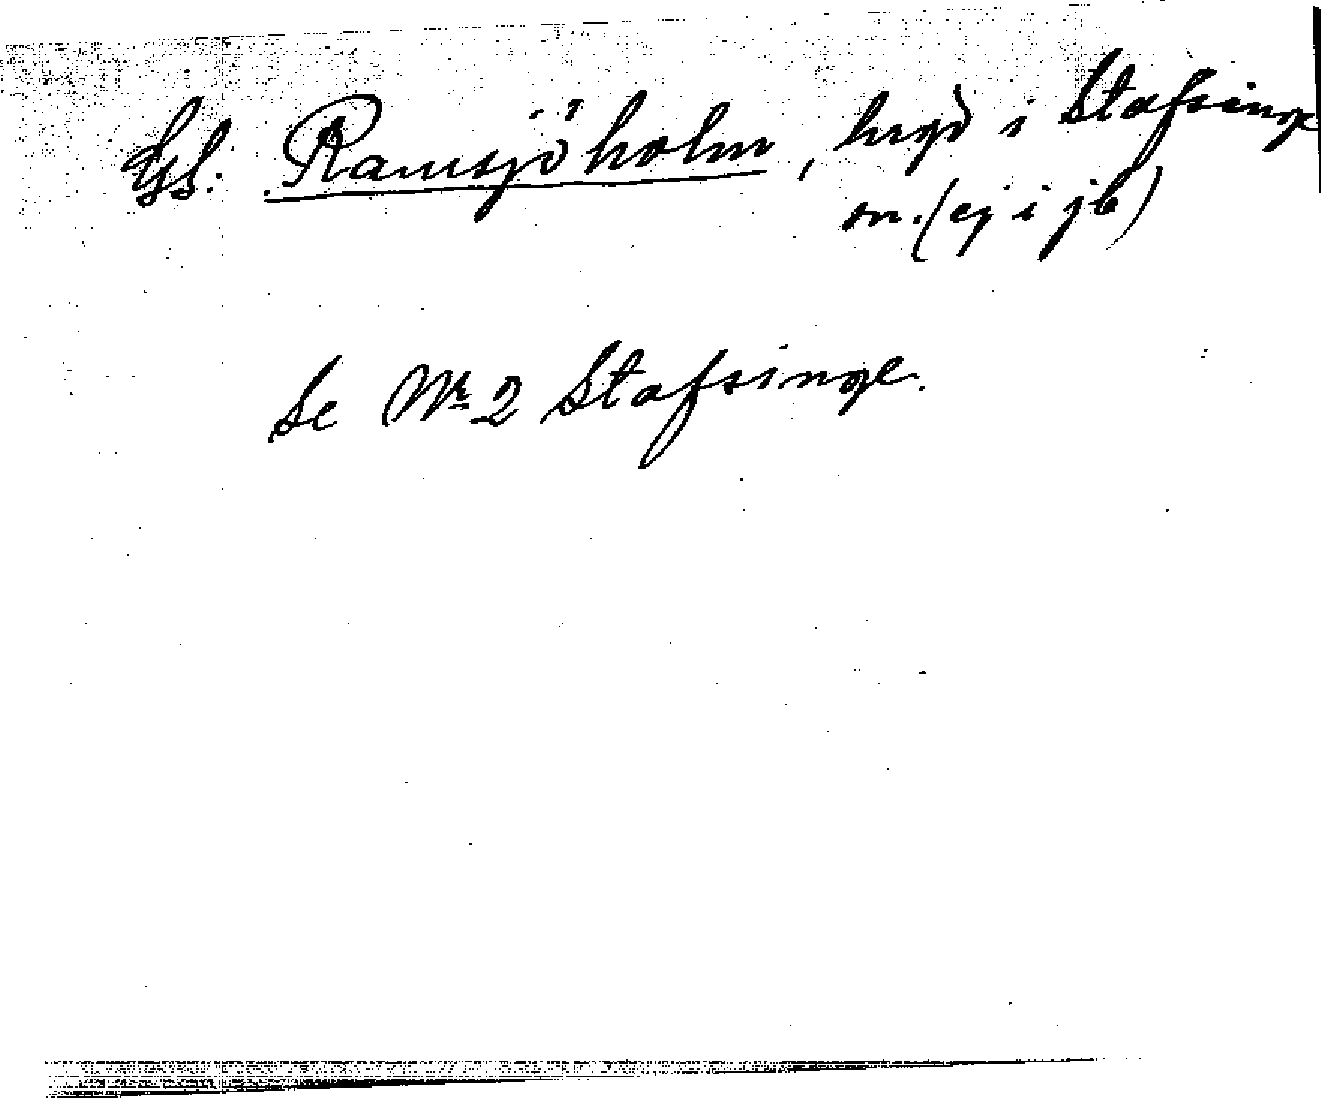 Gl. Ramsjöholm, hrgd i Stafsinge
sn. (ej i jb)
Se Nr 2 Stafsinge.